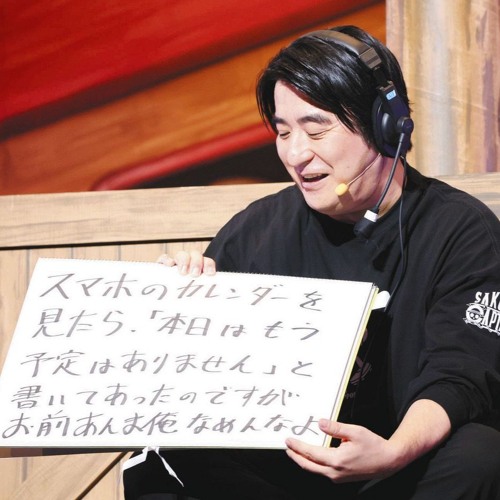 スマホのカレンダーを
見たら、「本日はもう
予定はありません」と
書いてあったのですが
お前あんま俺なめんなよ
SAK
API